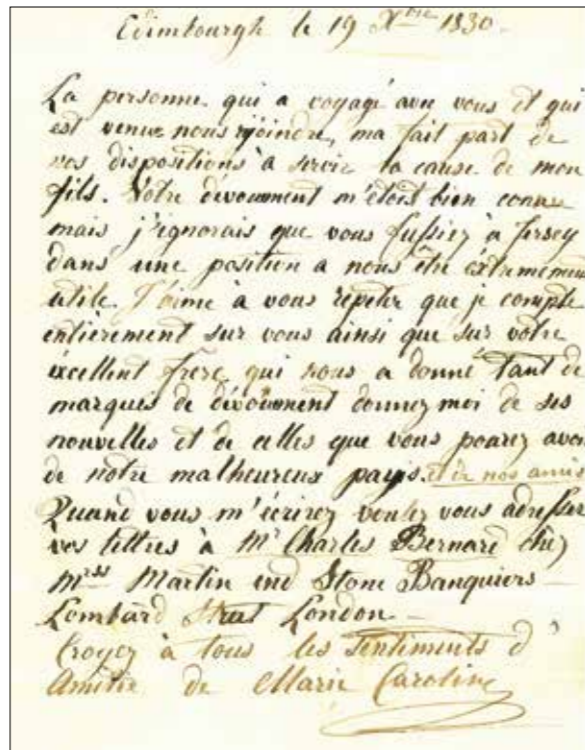 Edimbourgh le 19 Xbre 1830.
La personne qui a voyagé avec vous et qui
est venue nous rejoindre, ma fait part de
vos dispositions à servir la cause de mon
fils. Votre dévoument m'étoit bien connu
mais j'ignorais que vous fussiez à Jersey
dans une position a nous être éxtrememen
utile. J'aime à vous répéter que je compte
entièrement sur vous ainsi que sur votre
éxcellent frere qui nous a donné tant de
marques de dévoument donnez moi de ses
nouvelles et de celles que vous pourez avoi
de notre malheureux pays. et de nos amis
Quand vous m'écrirez voulez vous adresser
vos lettres à Mr Charles Bernard chez
Mrss Martin and Stone Banquiers
Lombard Street London
Croyez à tous les sentiments d'
Amitié de Marie Caroline